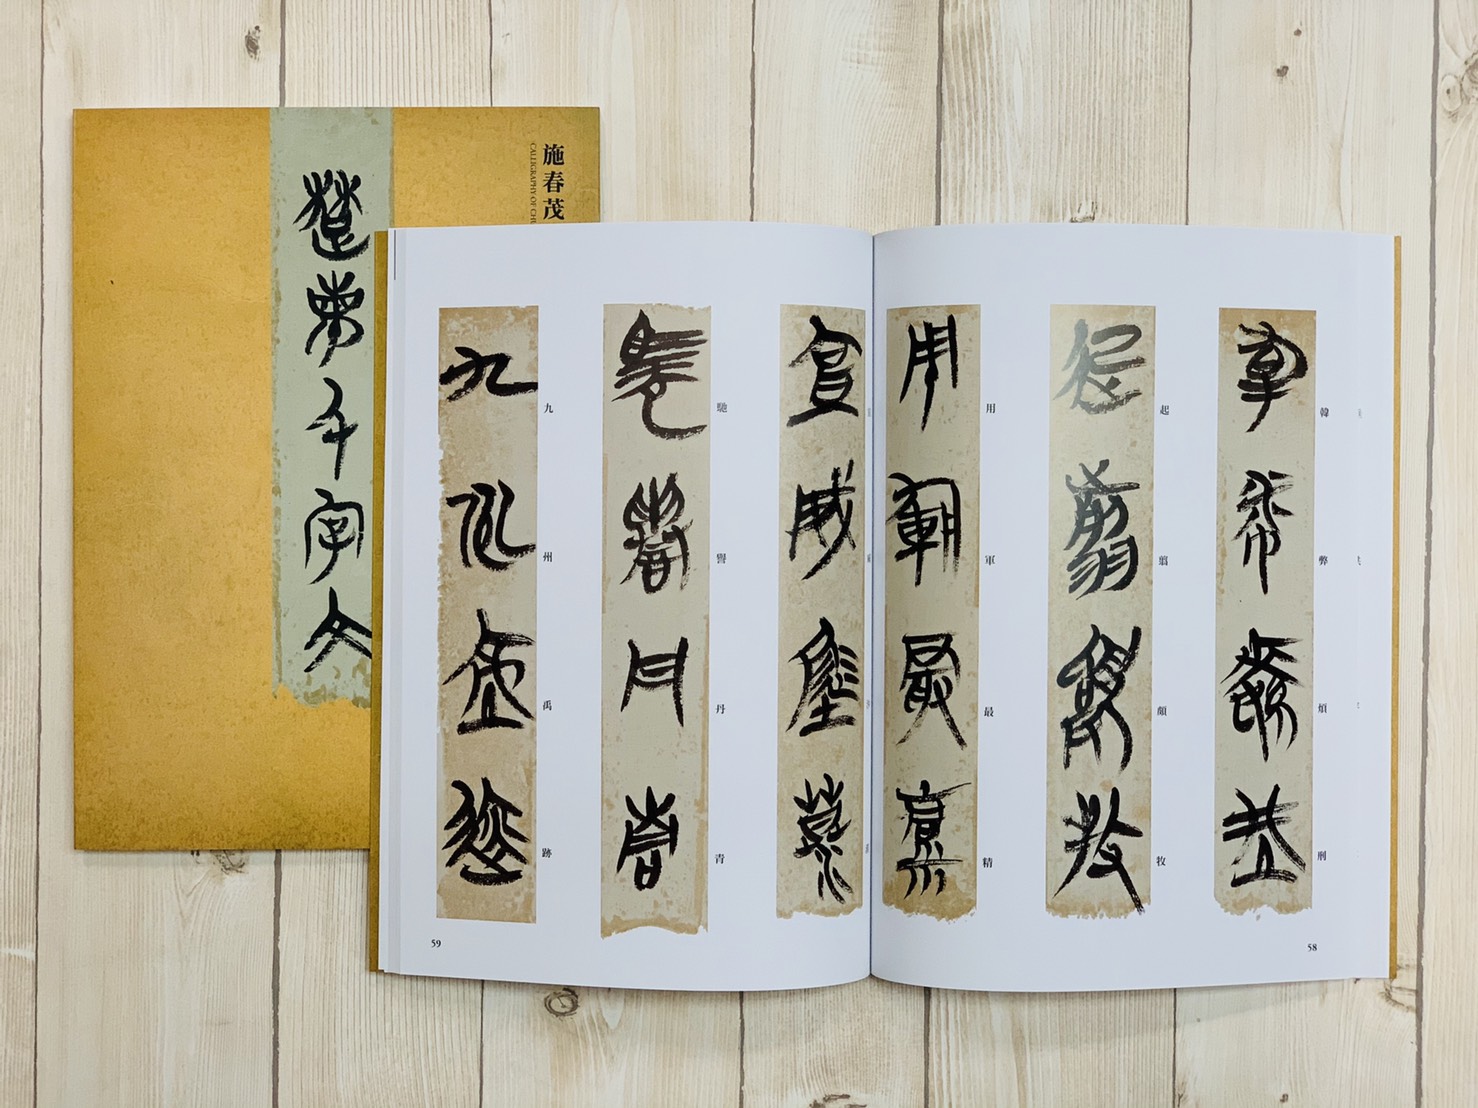 施春茂
CALLIGRAPHY OF CHU
千字文
韓弊煩刑
韓弊煩刑
起翦頗牧
起翦頗牧
用軍最精
用軍最精
58
宣威沙漠
馳譽丹青
馳譽丹青
九州禹跡
九州禹跡
59